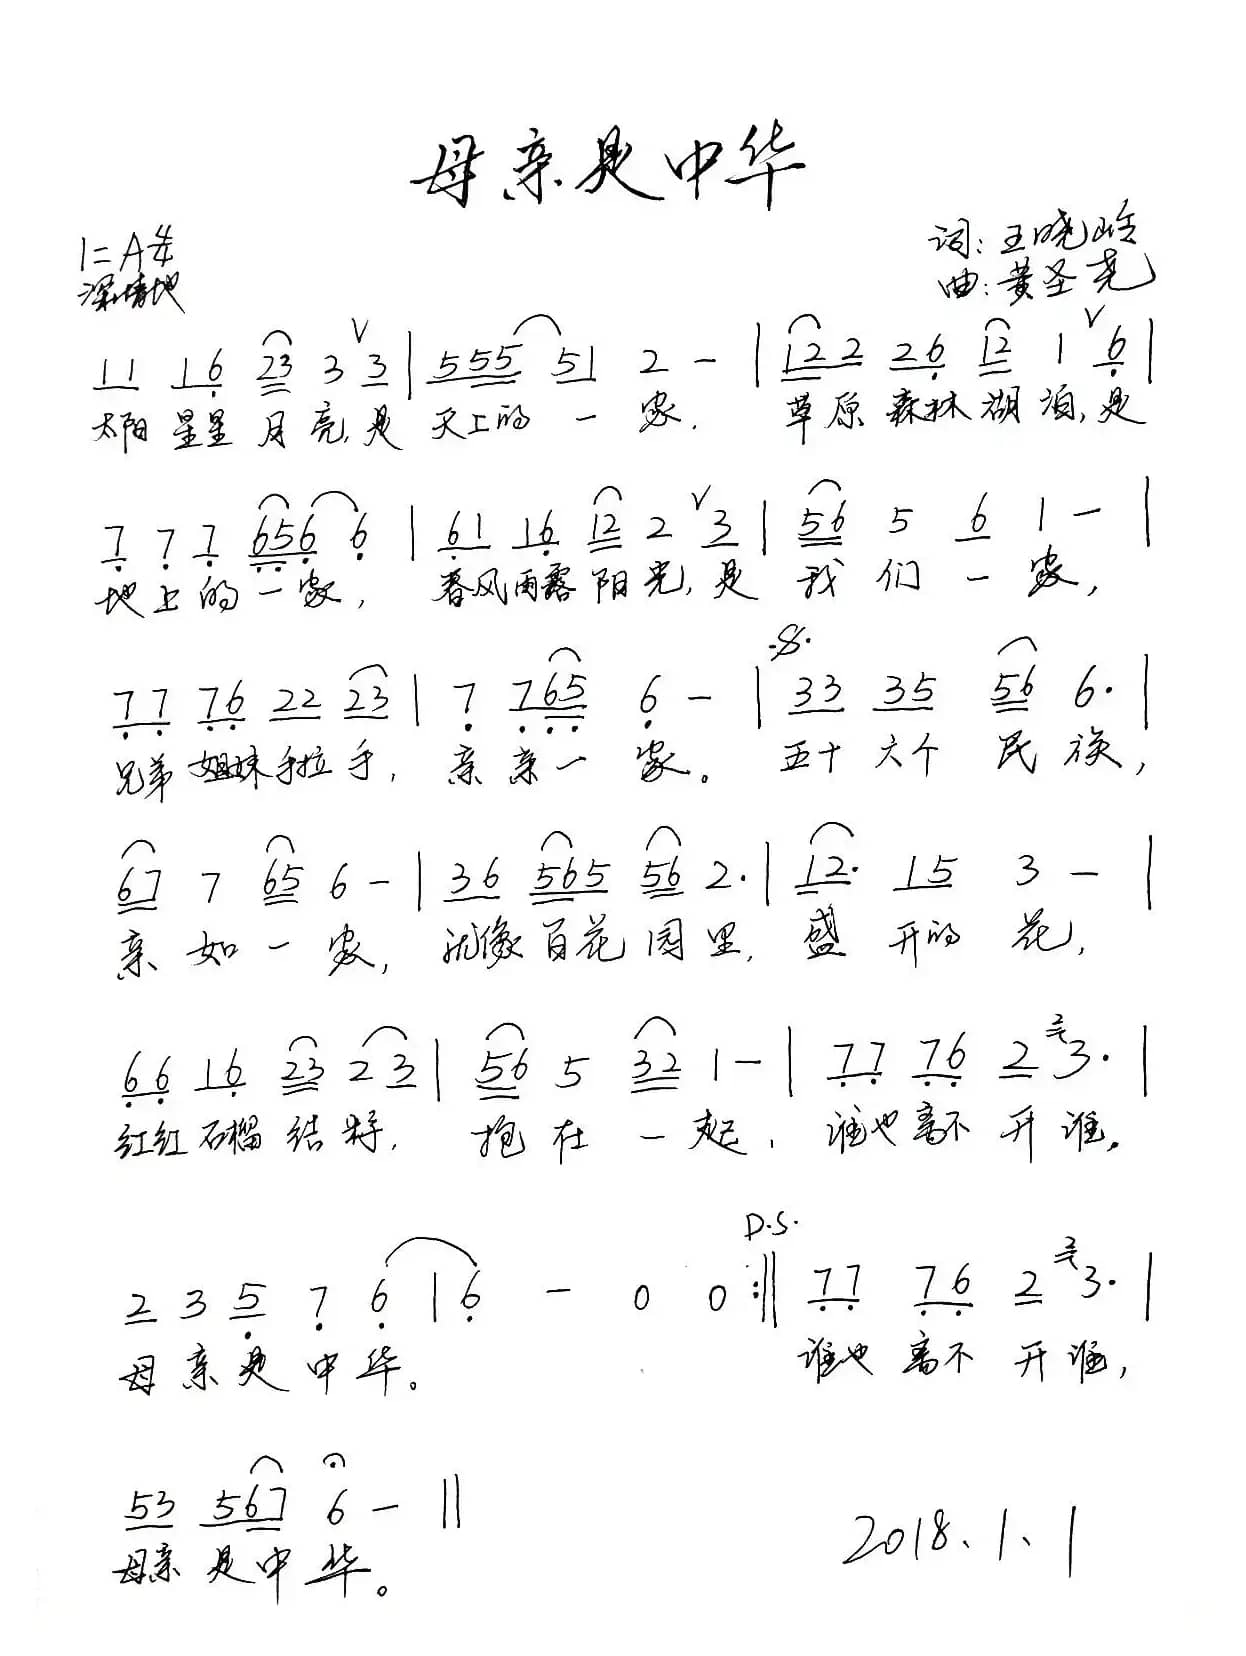 母亲是中华
1=A 4/4
深情地
词:王晓岭
曲:黄圣尧
11 16 23 3 3 | 555 51 2 - | 122 26 12 1 6 |
太阳 星星 月亮,是 天上的 一 家. 草原森林湖泊,是
7 7 7 656 6 | 61 16 12 2 3 | 56 5 6 1 - |
地上的一家, 春风雨露阳光,是 我们一家,
77 76 22 23 | 7 765 6 - | 33 35 56 6· |
兄弟姐妹手拉手, 亲亲一家。 五十六个民族,
67 7 65 6 - | 36 565 56 2· | 12· 15 3 - |
亲如一家, 就像百花园里, 盛开的花,
66 16 23 23 | 56 5 32 1 - | 77 76 2 2 3· |
红红石榴结籽, 抱在一起, 谁也离不开谁.
D.S.
2 3 5 7 6 | 6 - 0 0 :|| 77 76 2 2 3· |
母亲是中华。 谁也离不开谁,
53 567 6 - ||
母亲是中华。
2018.1.1